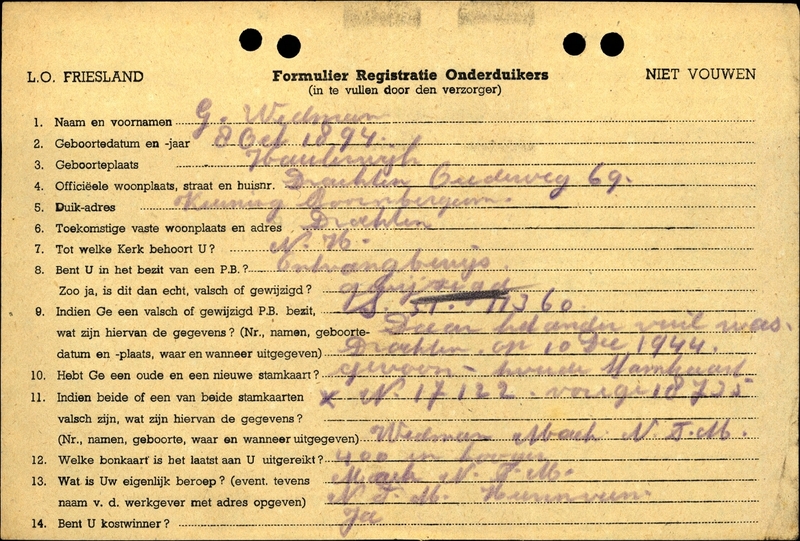 L.O. FRIESLAND
Formulier Registratie Onderduikers
NIET VOUWEN
(in te vullen door den verzorger)
1. Naam en voornamen G. Wedman
2. Geboortedatum en -jaar 8 Oct 1894.
3. Geboorteplaats
4. Officiëele woonplaats, straat en huisnr. Drachten Oudeweg 69.
5. Duik-adres
6. Toekomstige vaste woonplaats en adres Drachten
7. Tot welke Kerk behoort U? N. H.
8. Bent U in het bezit van een P.B.? Ontvangbewijs
Zoo ja, is dit dan echt, valsch of gewijzigd? gewijzigd
9. Indien Ge een valsch of gewijzigd P.B. bezit, 11360
wat zijn hiervan de gegevens? (Nr., namen, geboorte- Daar het ander vuil was.
datum en -plaats, waar en wanneer uitgegeven) Drachten op 10 Dec 1944.
10. Hebt Ge een oude en een nieuwe stamkaart? gewoon - tweede stamkaart
11. Indien beide of een van beide stamkaarten x N. 17122. vorige 18735
valsch zijn, wat zijn hiervan de gegevens?
(Nr., namen, geboorte, waar en wanneer uitgegeven) Wedman Mach. N.T.M.
12. Welke bonkaart is het laatst aan U uitgereikt? 400
13. Wat is Uw eigenlijk beroep? (event. tevens Mach N.T.M.
naam v. d. werkgever met adres opgeven) N.T.M.
14. Bent U kostwinner? Ja